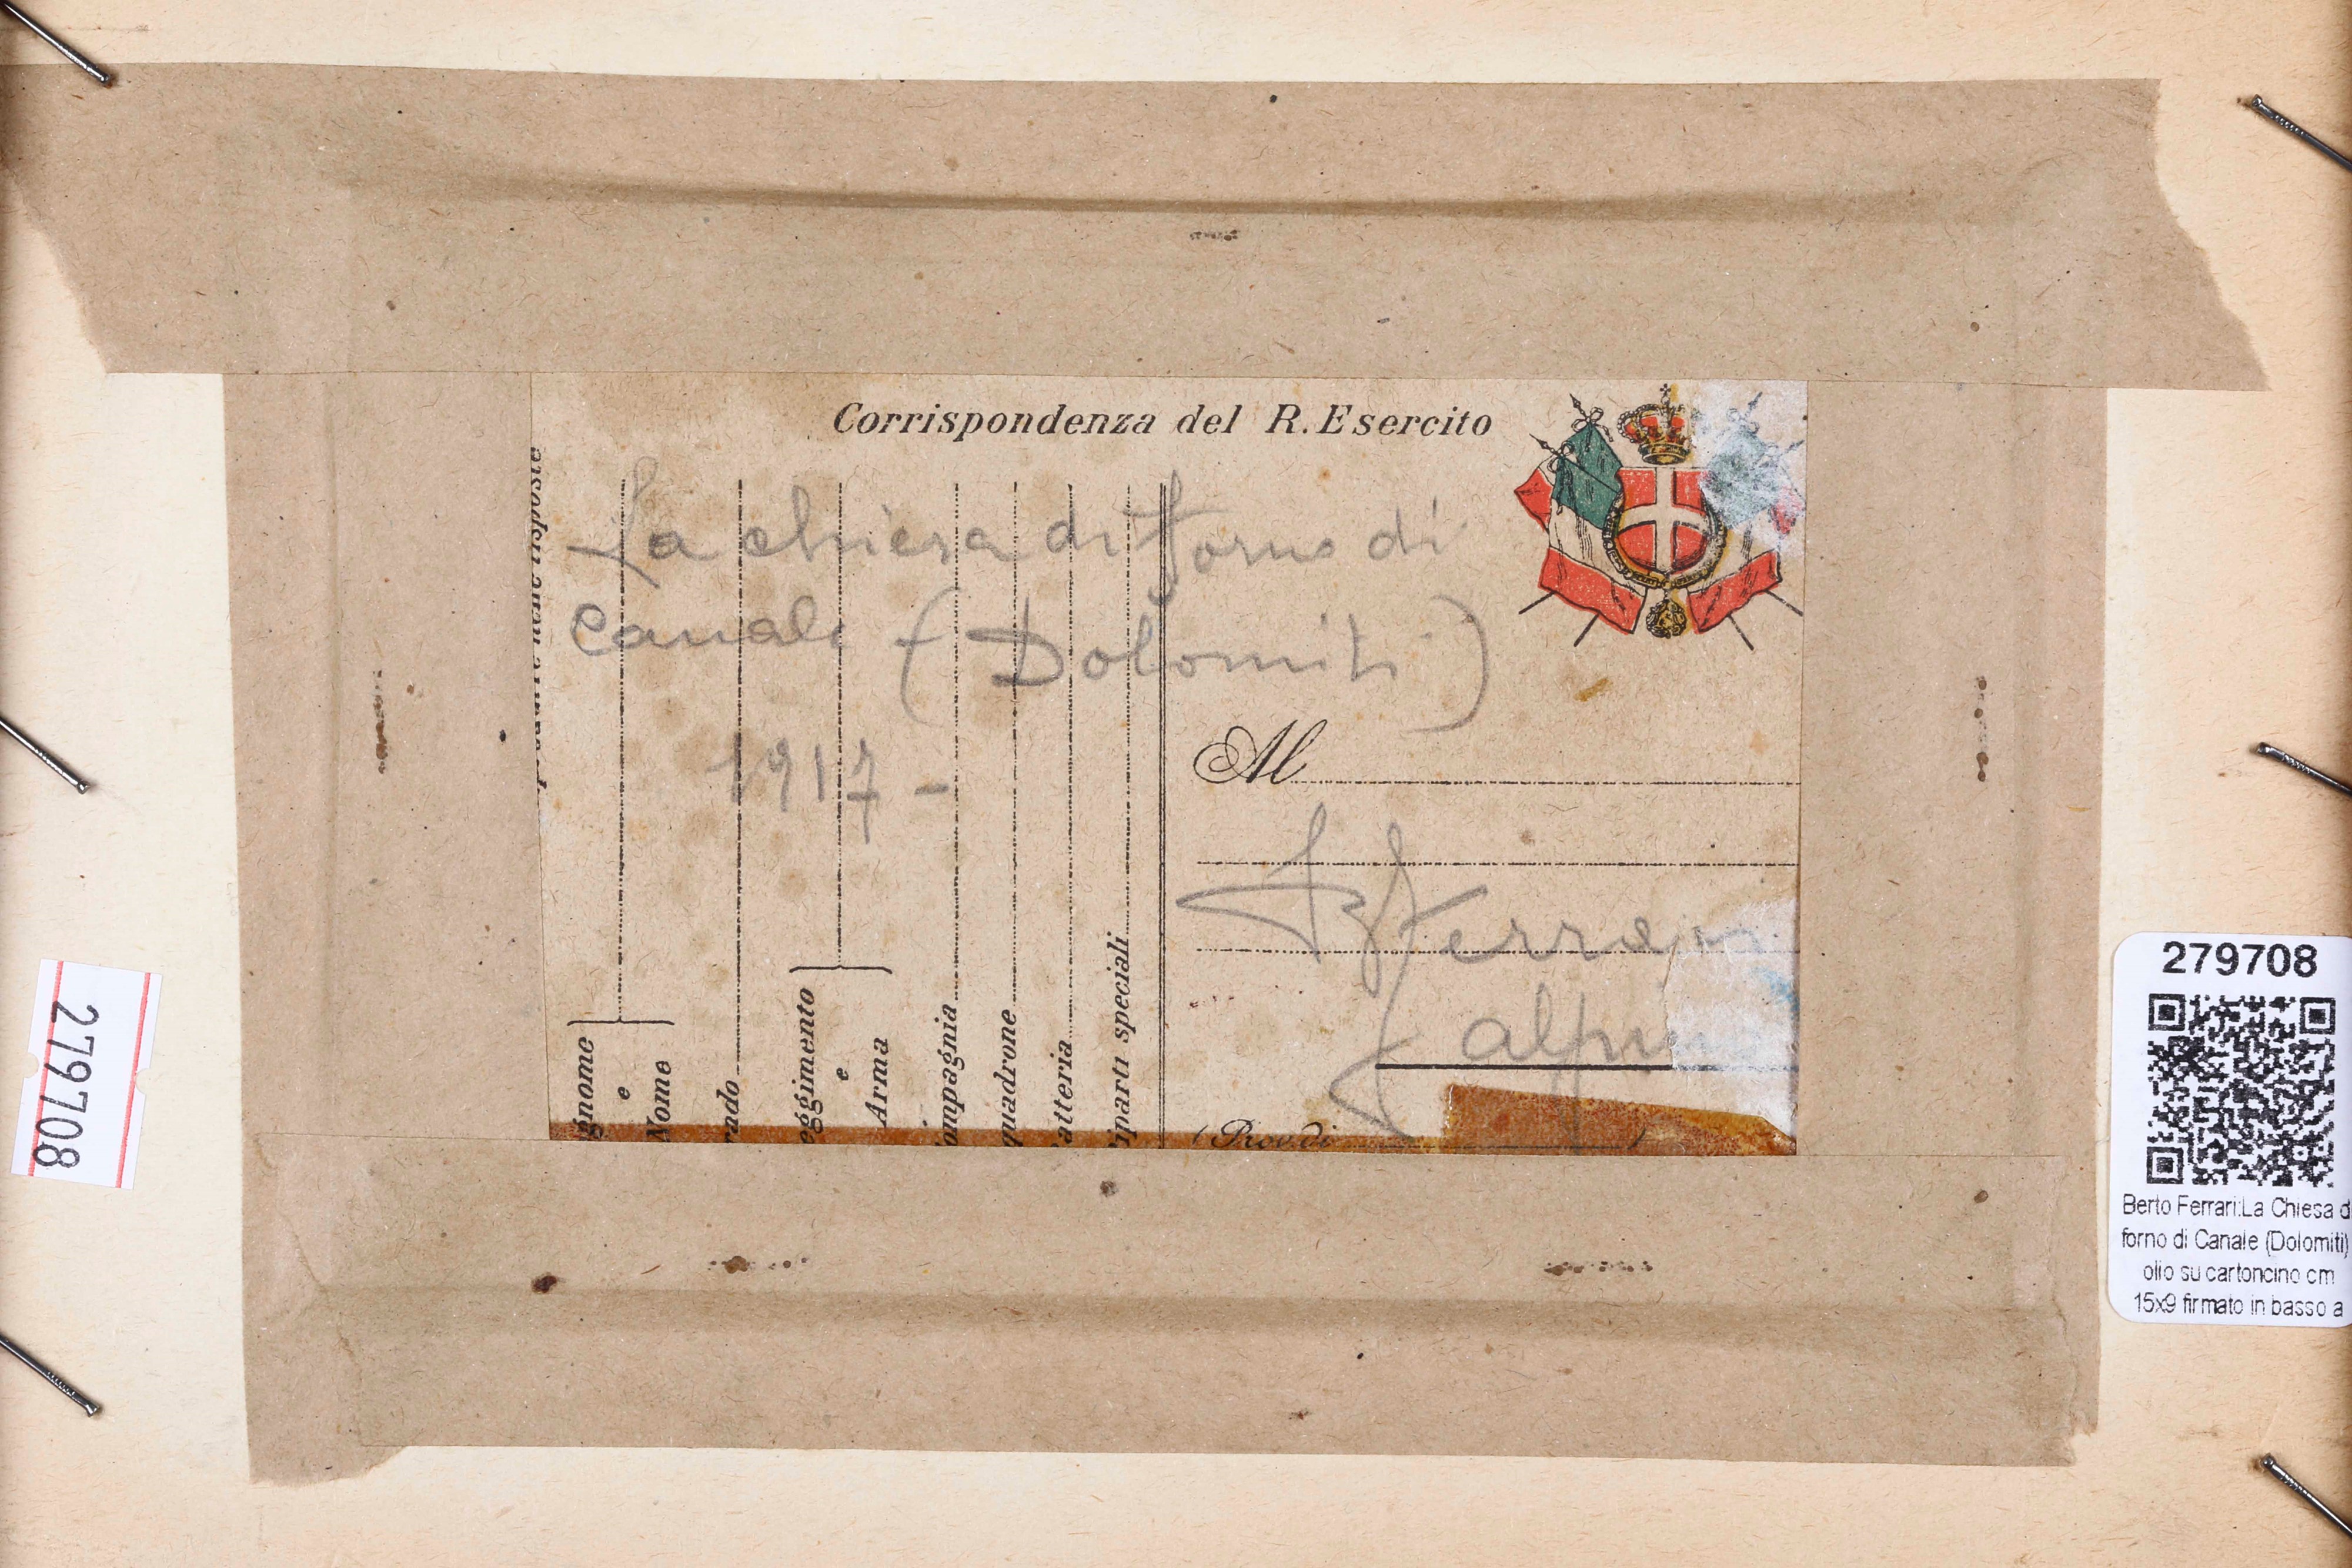 Corrispondenza del R. Esercito
La chiesa di forno di
canale (Dolomiti)
1917 -
Al
BFerrari
alpino
(Prov. di )
nelle risposte
gnome
e
Nome
rado
eggimento
e
Arma
ompagnia
quadrone
atteria
iparti speciali
279708
279708
Berto Ferrari:La Chiesa d
forno di Canale (Dolomiti)
olio su cartoncino cm
15x9 firmato in basso a